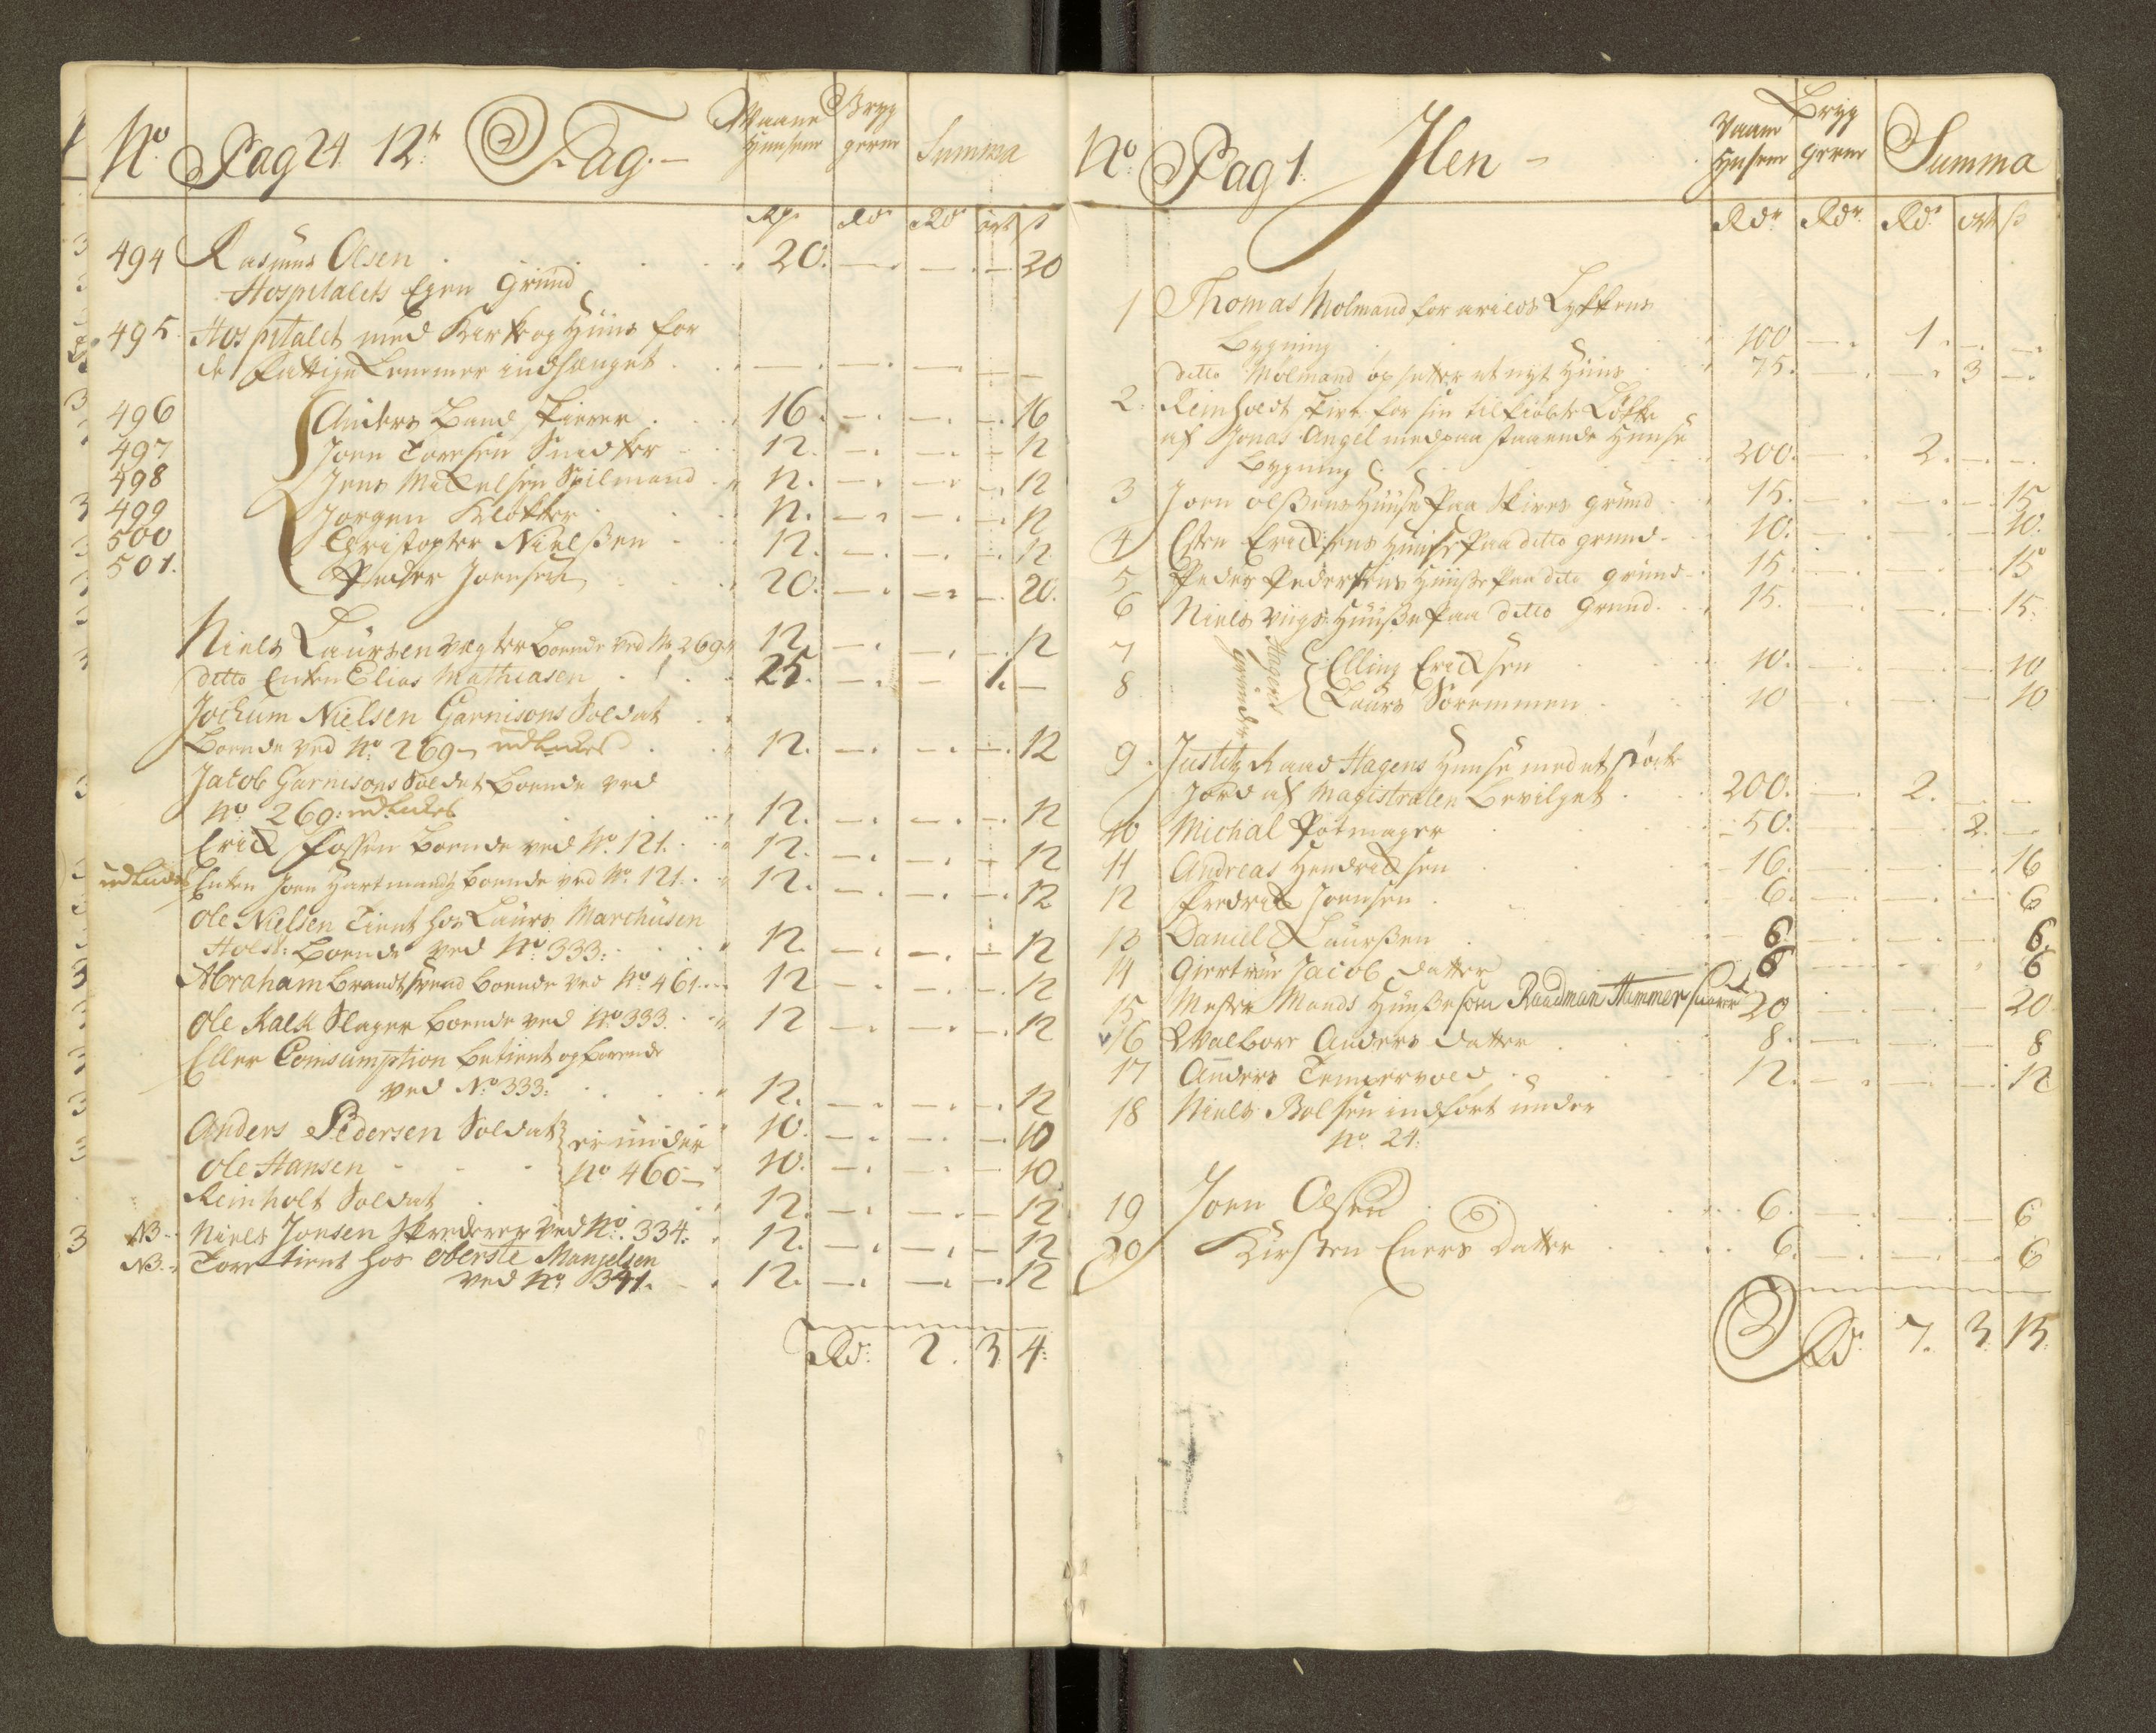 No. Pag 24 12te Tag.- Waane Huusene Bryggerne Summa
Rdr Rdr Rdr ort ß
494 Rasmus Olsen 20. — — — 20
Hospitalets Egen Grund
495. Hospitalet med Kirke og Huus for
de Fattige Lemmer indhænget — — — — —
496 Anders Baud Skierer 16. — — — 16
497 Joen Toresen Snidker 12. — — — 12
498 Jens Mickelsen Spilmand 12. — — — 12
499 Jørgen Klokker 12. — — — 12
500 Christopher Nielssen 12. — — — 12
501. Peder Joensen 20. — — — 20.
Niels Laursen Vægter boende ved No 269 12. — — — 12
ditto Enken Elias Mathiasen 25. — — 1. —
Jochum Nielsen Garnisons Soldat
boende ved No. 269 - udlukes 12. — — — 12
Jacob Garnisons Soldat boende ved
No 269: udlukes 12. — — — 12
Erick Fossen boende ved No. 121. 12. — — — 12
udlukes Enken Joen Hartmands boende ved No. 121. 12. — — — 12
Ole Nielsen Tient hos Laurs Marchusen
Holst: boende ved No. 333: 12. — — — 12
Abraham Brandtsvend boende ved No. 461. 12 — — — 12
Ole Kalk Slager boende ved No. 333. 12 — — — 12
Eller Comsumption betient og boende
ved No. 333: 12. — — — 12
Anders Pedersen Soldat er under 10. — — — 10
Ole Hansen No 460 - 10. — — — 10
Reinholt Soldat 12. — — — 12
NB. Niels Jonsen Skreder ved No. 334. 12. — — — 12
NB. Tore tient hos Oberste Mangelsen
ved No 341. 12. — — — 12
Rdr. 2. 3. 4.
No. Pag 1. Ilen - Vaane Husene Bryggerne Summa
Rdr Rdr Rdr ort ß
1 Thomas Molmand for Løkkens
Bygning 100 — 1. — —
ditto Molmand opsætter et nyt Huus 75. — — 3 —
2. Reinholdt for sin tilkiøbte Løkke
af Jonas Angel med paa staaende Huuse
Bygning 200. — 2. — —
3 Joen Olssens Huuse paa grund 15. — — — 15
4 Esten Ericksens Huuse paa ditto grund 10. — — — 10.
5 Peder Pedersens Huusse paa dito grund 15. — — — 15
6 Niels Viigs Huusse paa ditto Grund 15. — — — 15.
Hagens grunde
7 Elling Ericksen 10. — — — 10
8 Laurs Soremmen 10 — — — 10
9. Justitz Raad Hagens Huuse med et støcke
Jord af Magistraten bevilget 200. — 2. — —
10 Michal Potmager 50. — — 2. —
11 Andreas Hendricksen 16. — — — 16
12 Fredrick Joensen 6. — — — 6
13 Daniel Laurssen 6. — — — 6.
14 Giertrue Jacob datter 6 — — — 6
15 Mester Mands Huusse som Raadman Hammer svarer 20 — — — 20
16 Walbor Anders datter 8. — — — 8
17 Anders Tempervold 12. — — — 12
18 Niels Bolsen indført under
No. 24.
19 Joen Olsen 6. — — — 6
20 Kirsten Eners datter 6. — — — 6
Rdr. 7. 3. 15.